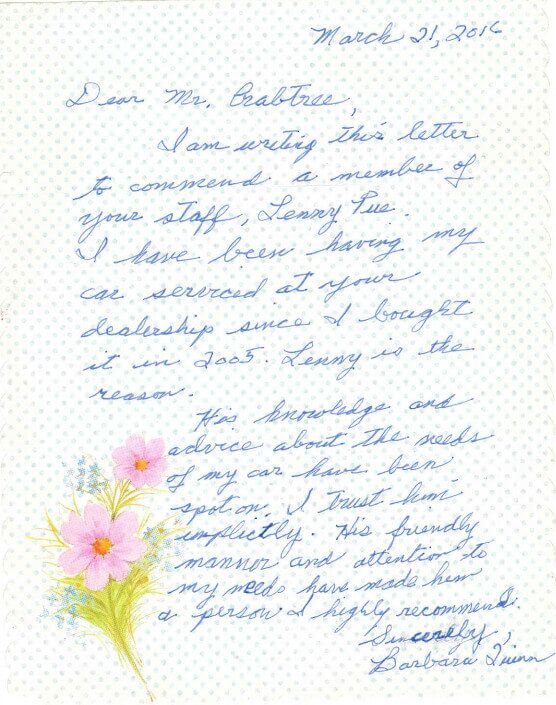 March 21, 2016
Dear Mr. Crabtree,
I am writing this letter
to commend a member of
your staff, Lenny Pue.
I have been having my
car serviced at your
dealership since I bought
it in 2005. Lenny is the
reason.
His knowledge and
advice about the needs
of my car have been
spot on. I trust him
implicitly. His friendly
manner and attention to
my needs have made him
a person I highly recommend.
Sincerely,
Barbara Quinn